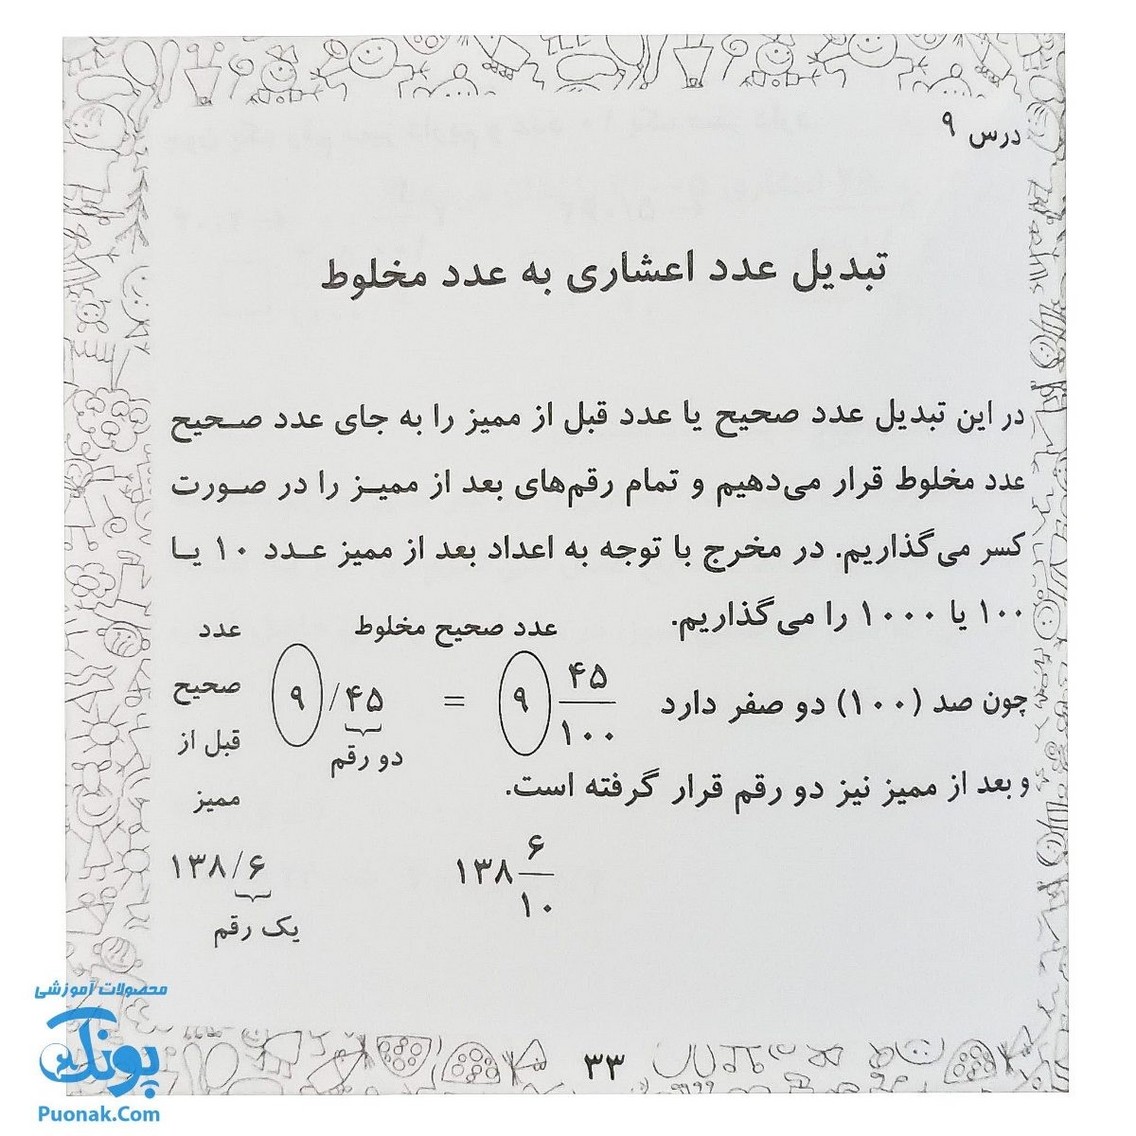 درس ۹
تبدیل عدد اعشاری به عدد مخلوط
در این تبدیل عدد صحیح یا عدد قبل از ممیز را به جای عدد صحیح
عدد مخلوط قرار می‌دهیم و تمام رقم‌های بعد از ممیز را در صورت
کسر می‌گذاریم. در مخرج با توجه به اعداد بعد از ممیز عدد ۱۰ یا
۱۰۰ یا ۱۰۰۰ را می‌گذاریم.
عدد صحیح مخلوط
عدد
صحیح
قبل از
ممیز
۹/۴۵ = ۹ ۴۵/۱۰۰
دو رقم
چون صد (۱۰۰) دو صفر دارد
و بعد از ممیز نیز دو رقم قرار گرفته است.
۱۳۸/۶
یک رقم
۱۳۸ ۶/۱۰
۳۳
محصولات آموزشی
پونک
Puonak.Com